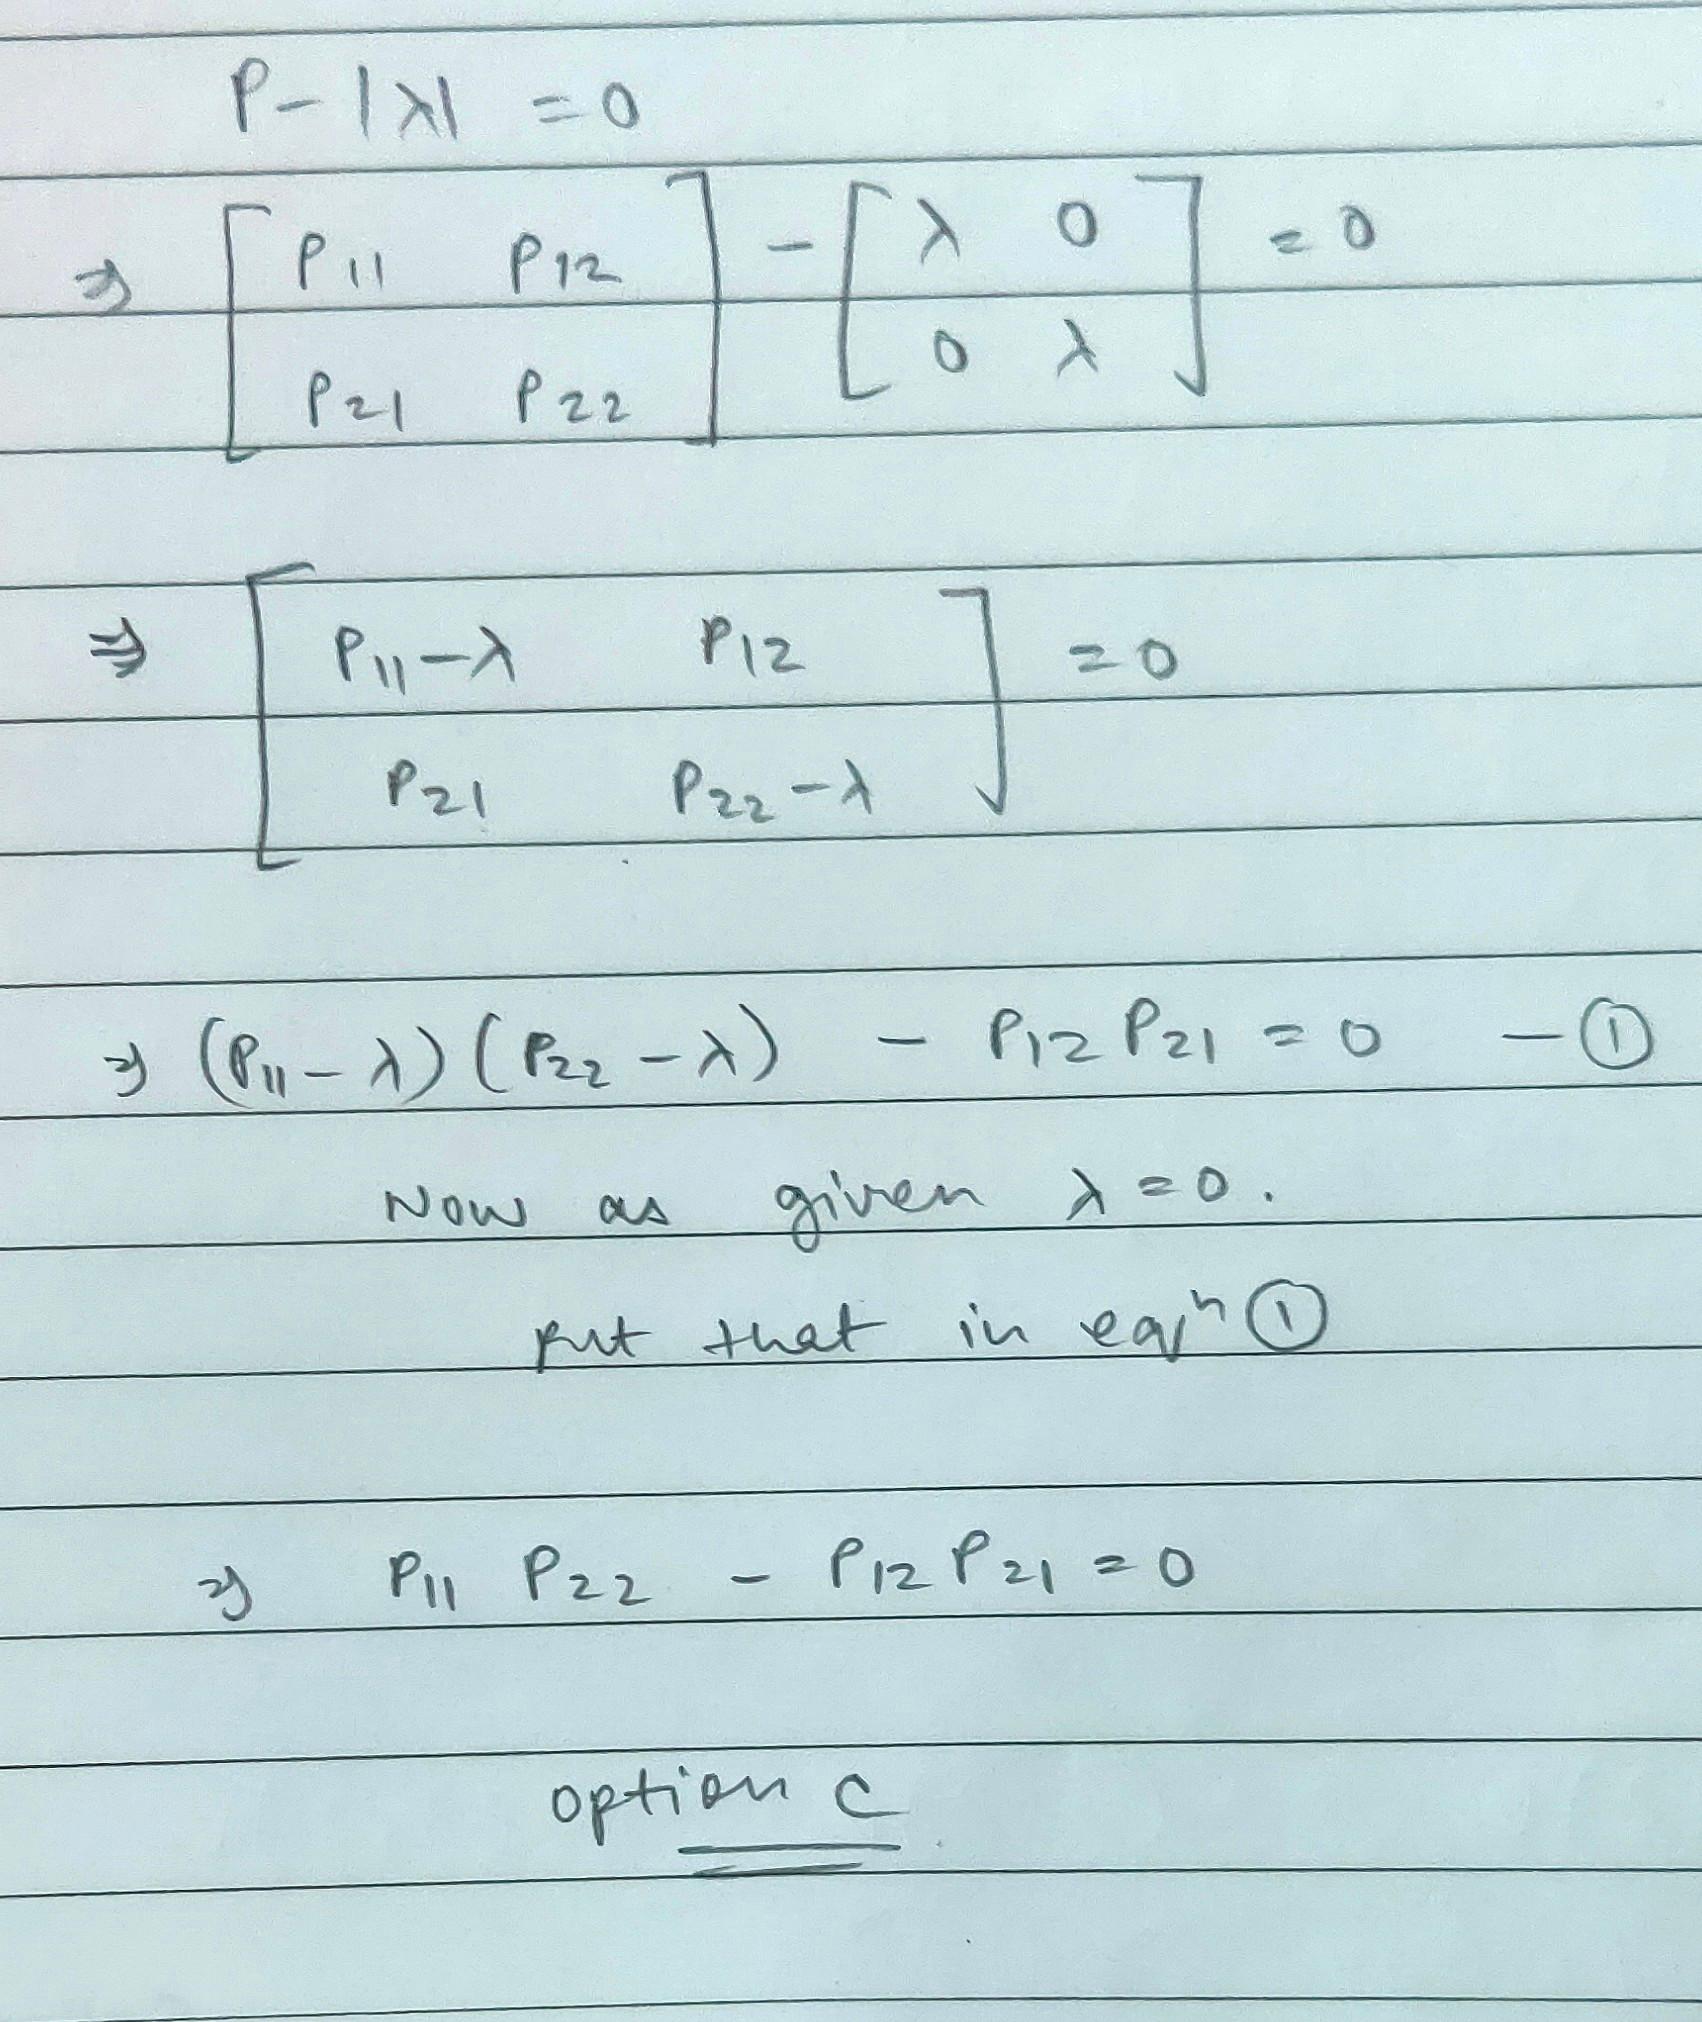 P - |λ| = 0
⇒ [ P11 P12 ] - [ λ 0 ] = 0
[ P21 P22 ] [ 0 λ ]
⇒ [ P11-λ P12 ] = 0
[ P21 P22-λ ]
⇒ (P11 - λ) (P22 - λ) - P12 P21 = 0 - ①
Now as given λ = 0.
put that in eqn ①
⇒ P11 P22 - P12 P21 = 0
option C